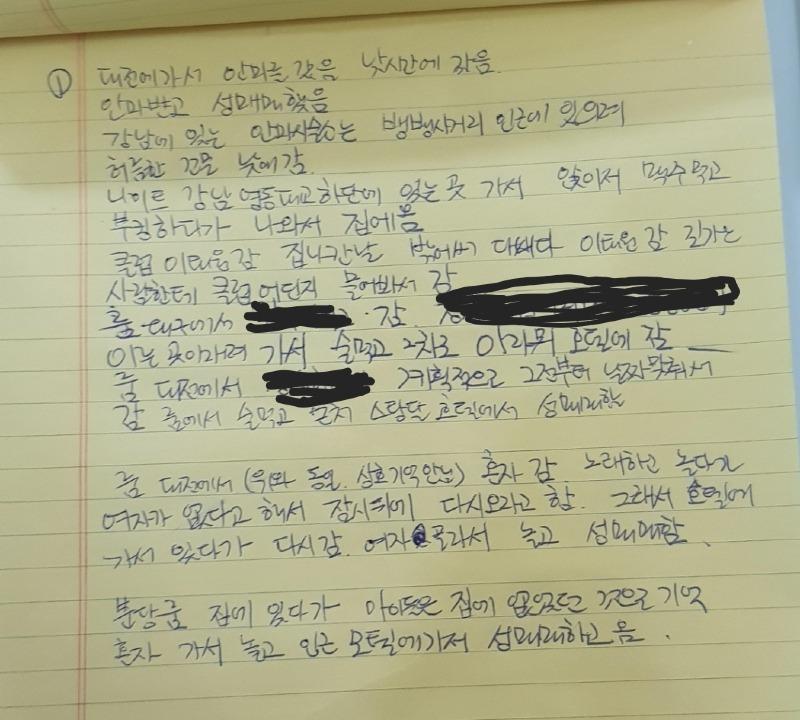 ① 대전에가서 안마를 갔음 낮시간에 갔음.
안마받고 성매매했음
강남에 있는 안마시술소는 뱅뱅사거리 인근에 있으며
허름한 건물 낮에감.
나이트 강남 영동대교하단에 있는 곳 가서 앉아서 맥주먹고
부킹하다가 나와서 집에옴
클럽 이태원감 집나간날 밖에서 다배다 이태원 감 길가는
사람한테 클럽 어딘지 물어봐서 감
룸. 대구에서 감.
아는 곳이라며 가서 술먹고 2차로 아라뮈 호텔에 감
룸 대전에서 계획적으로 그전부터 날짜맞춰서
감 룸에서 술먹고 근처 스탕달 호텔에서 성매매함
룸 대전에서 (위와 동일. 상호기억안남) 혼자 감 노래하고 놀다가
여자가 없다고 해서 잠시뒤에 다시오라고 함. 그래서 호텔에
가서 있다가 다시감. 여자 골라서 놀고 성매매함.
분당룸 집에 있다가 아이들은 집에 없었던 것으로 기억
혼자 가서 놀고 인근 모텔에가서 성매매하고 옴.